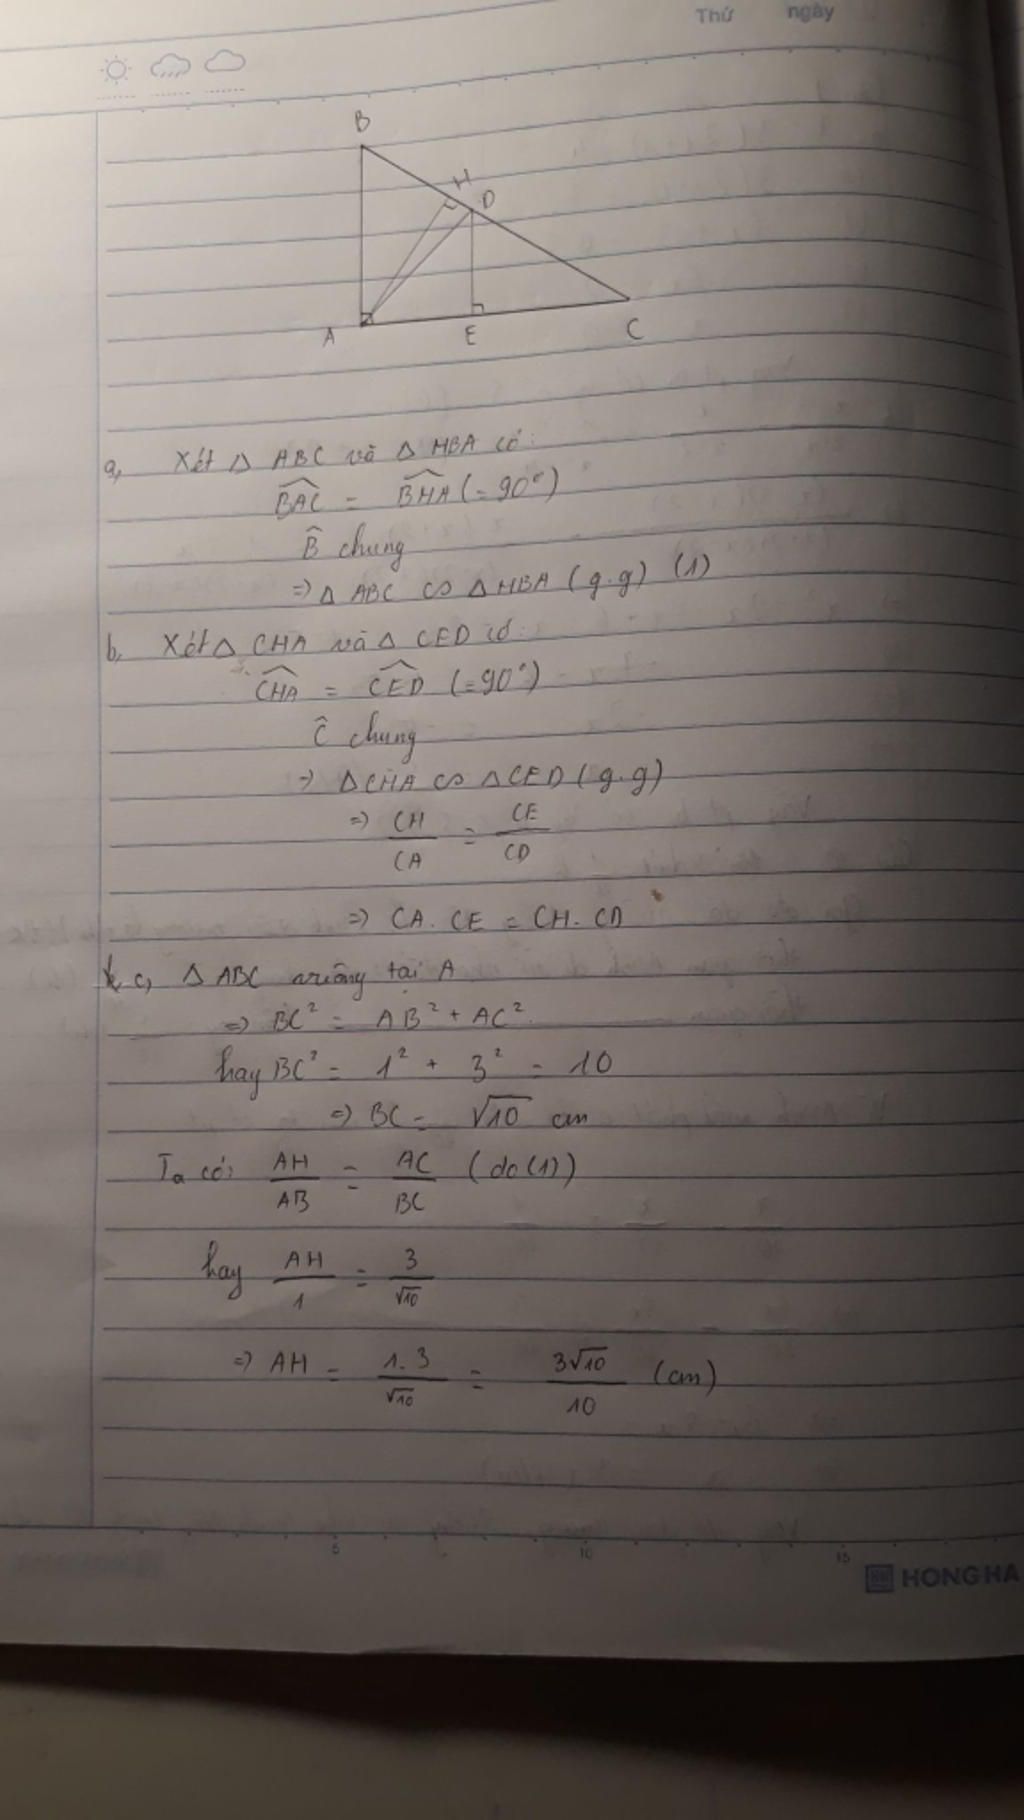 Thứ ngày
B
H
D
A
E
C
a, Xét Δ ABC và Δ HBA có:
$\widehat{BAC}$ = $\widehat{BHA}$ (= 90°)
$\widehat{B}$ chung
=> Δ ABC ∽ Δ HBA (g.g) (1)
b, Xét Δ CHA và Δ CED có:
$\widehat{CHA}$ = $\widehat{CED}$ (= 90°)
$\widehat{C}$ chung
=> Δ CHA ∽ Δ CED (g.g)
=> $\frac{CH}{CA}$ = $\frac{CE}{CD}$
=> CA. CE = CH. CD
c, Δ ABC vuông tại A
=> BC² = AB² + AC².
hay BC² = 1² + 3² = 10
=> BC = √10 cm
Ta có: $\frac{AH}{AB}$ = $\frac{AC}{BC}$ (do (1))
hay $\frac{AH}{1}$ = $\frac{3}{√10}$
=> AH = $\frac{1.3}{√10}$ = $\frac{3√10}{10}$ (cm)
5 10 15
HONG HA